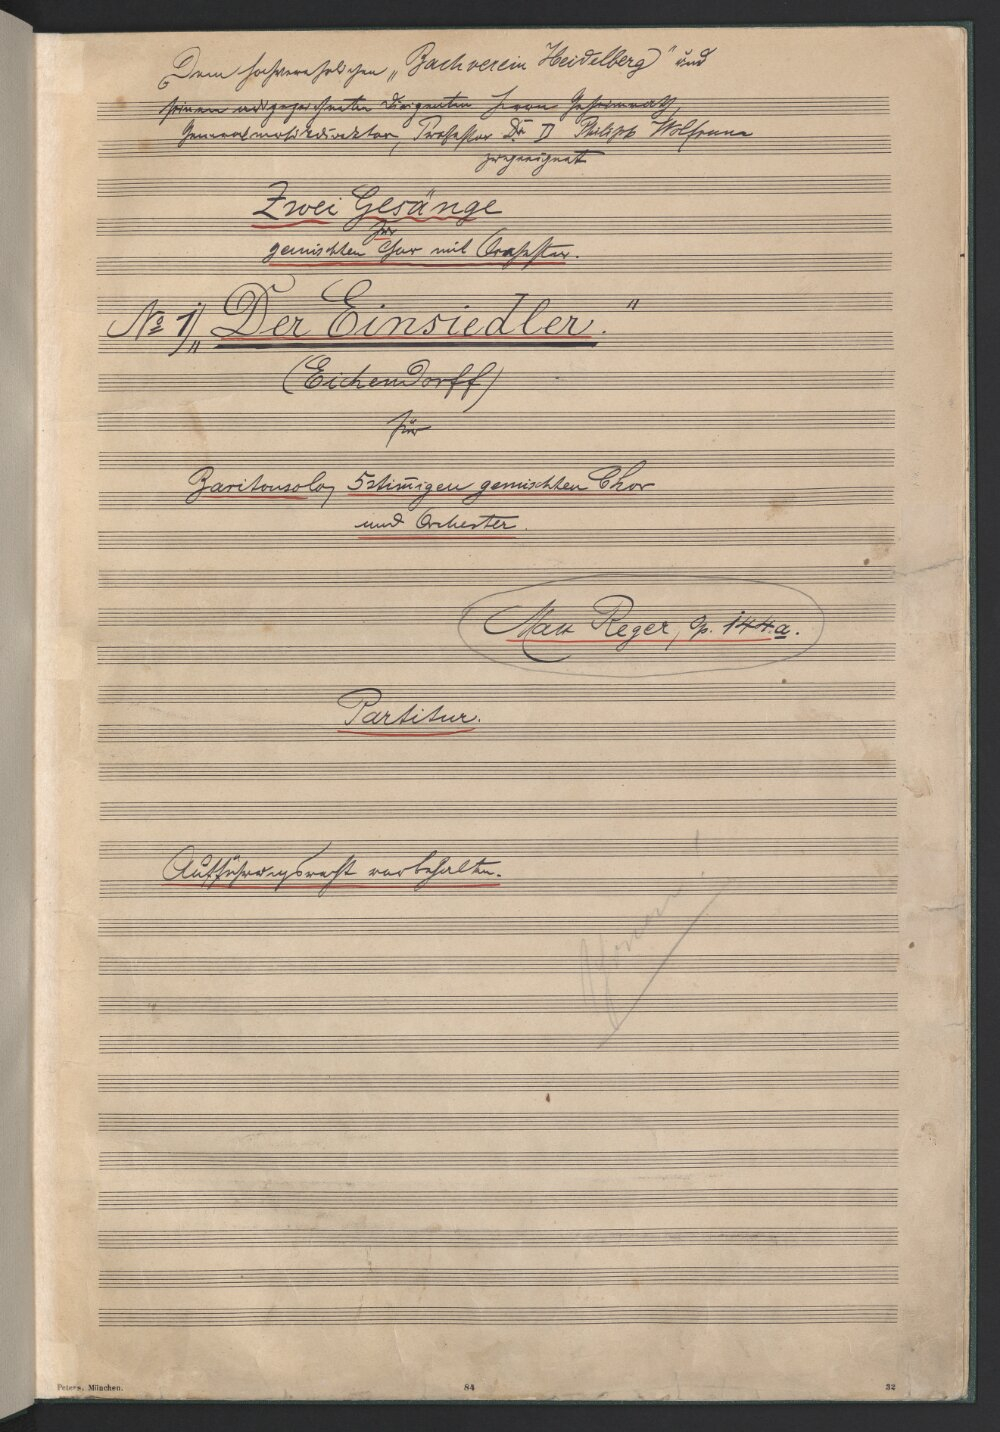 Dem hochverehrlichen „Bachverein Heidelberg" und
seinem ausgezeichneten Dirigenten Herrn Geheimrath,
Generalmusikdirektor, Professor Dr. D Philipp Wolfrum
zugeeignet
Zwei Gesänge
für
gemischten Chor mit Orchester.
No 1) „Der Einsiedler."
(Eichendorff)
für
Baritonsolo, 5stim̅igen gemischten Chor
und Orchester.
Max Reger, Op. 144.a.
Partitur.
Aufführungsrecht vorbehalten.
Peters, München.
84
32